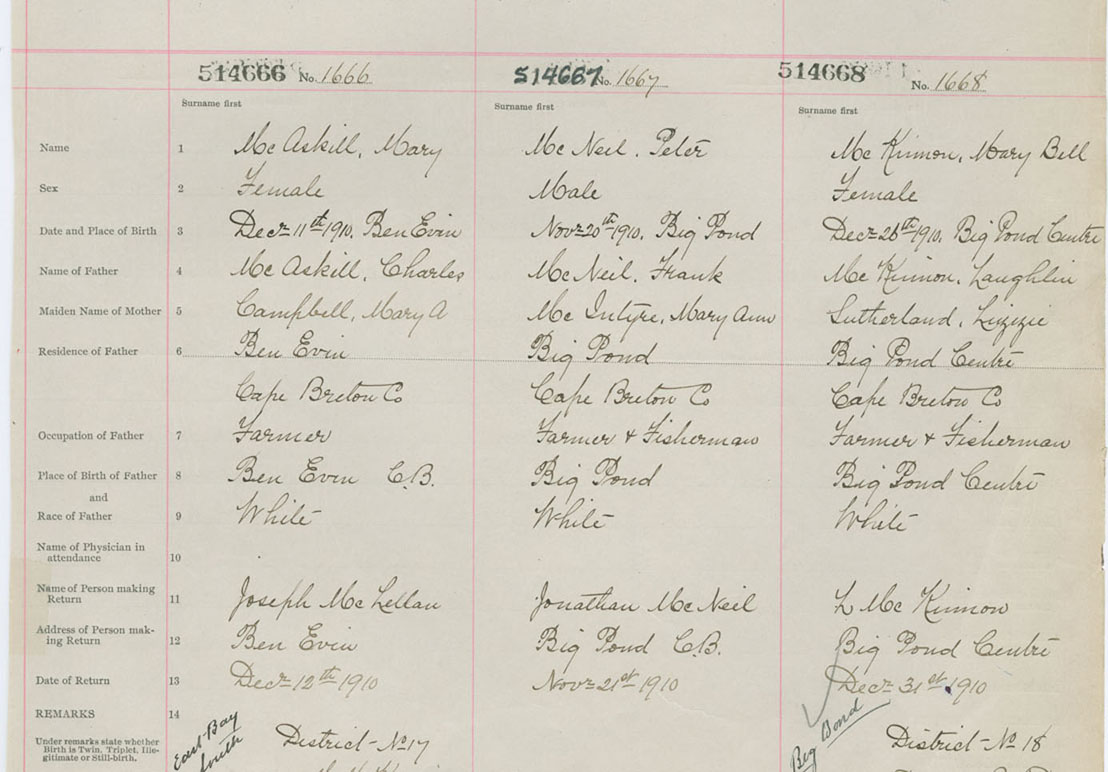 514666 No. 1666 514667 No. 1667 514668 No. 1668
Surname first Surname first Surname first
Name 1 Mc Askill, Mary Mc Neil. Peter Mc Kinnon, Mary Bell
Sex 2 Female Male Female
Date and Place of Birth 3 Decr 11th 1910. Ben Evin Novr 20th 1910. Big Pond Decr 28th 1910. Big Pond Centre
Name of Father 4 Mc Askill, Charles Mc Neil. Frank Mc Kinnon. Laughlin
Maiden Name of Mother 5 Campbell, Mary A Mc Intyre, Mary Ann Sutherland. Lizzie
Residence of Father 6 Ben Evin Big Pond Big Pond Centre
Cape Breton Co Cape Breton Co Cape Breton Co
Occupation of Father 7 Farmer Farmer & Fisherman Farmer & Fisherman
Place of Birth of Father 8 Ben Evin C.B. Big Pond Big Pond Centre
and
Race of Father 9 White White White
Name of Physician in
attendance 10
Name of Person making
Return 11 Joseph Mc Lellan Jonathan Mc Neil L Mc Kinnon
Address of Person mak-
ing Return 12 Ben Evin Big Pond C.B. Big Pond Centre
Date of Return 13 Decr 12th 1910 Novr 21st 1910 Decr 31st 1910
REMARKS 14
Under remarks state whether
Birth is Twin, Triplet, Ille-
gitimate or Still-birth.
East Bay
South
District - No 17
Big Pond
District - No 18